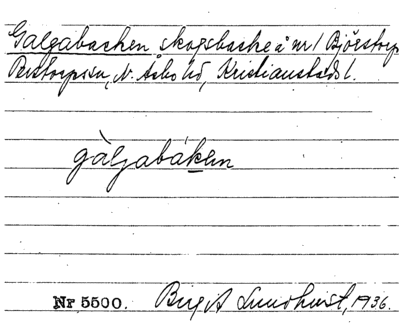 Galgabacken skogsbacke å nr 1 Björstorp
Perstorps sn, N. Åsbo hd, Kristianstads l.
gàljabáken
Nr 5500. Birgit Lundqvist, 1936.